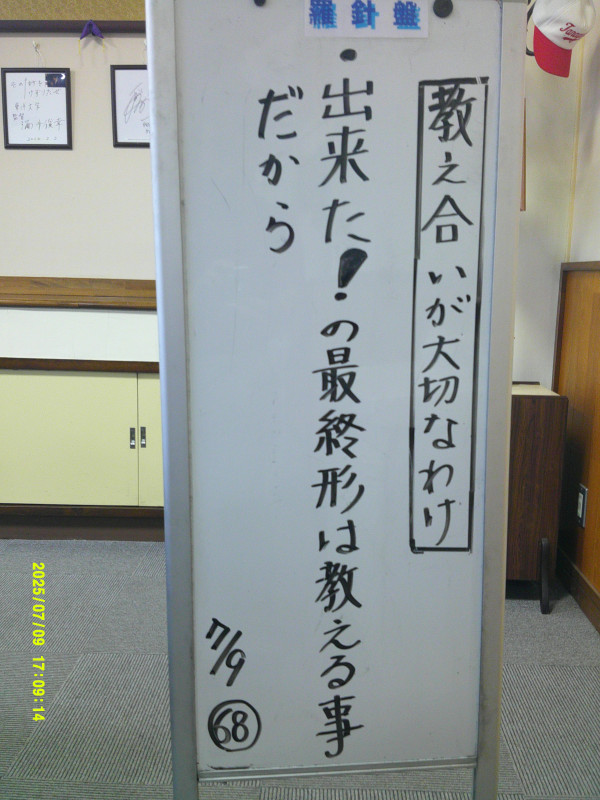 羅針盤
教え合いが大切なわけ
・出来た！の最終形は教える事
だから
7/9
68
2025/07/09 17:09:14